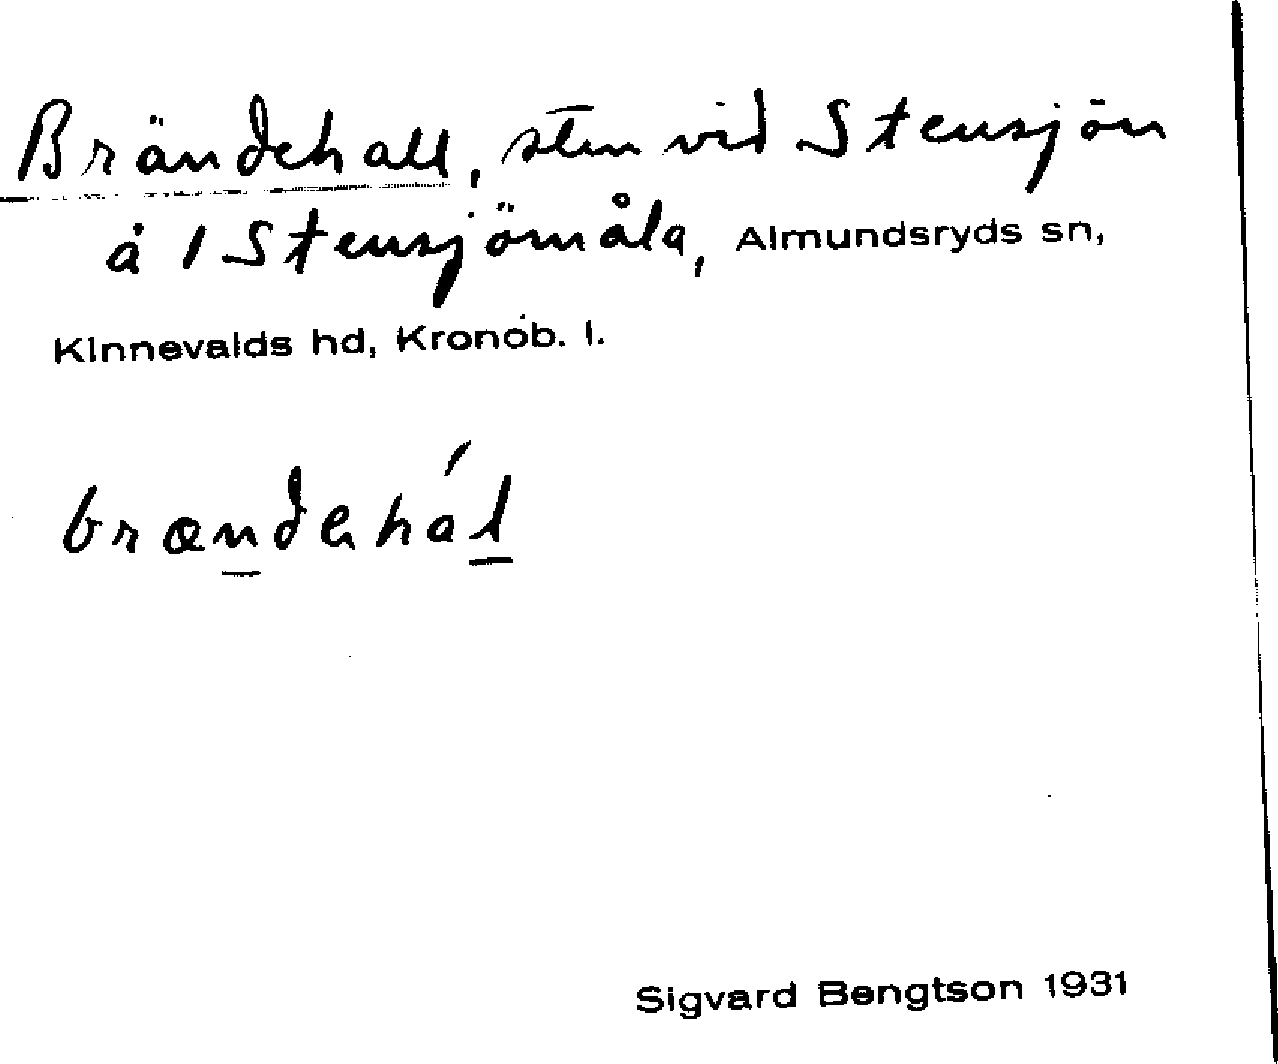 Brändehall, sten vid Stensjön
å 1 Stensjömåla, Almundsryds sn,
Kinnevalds hd, Kronob. l.
brændəhál
Sigvard Bengtson 1931